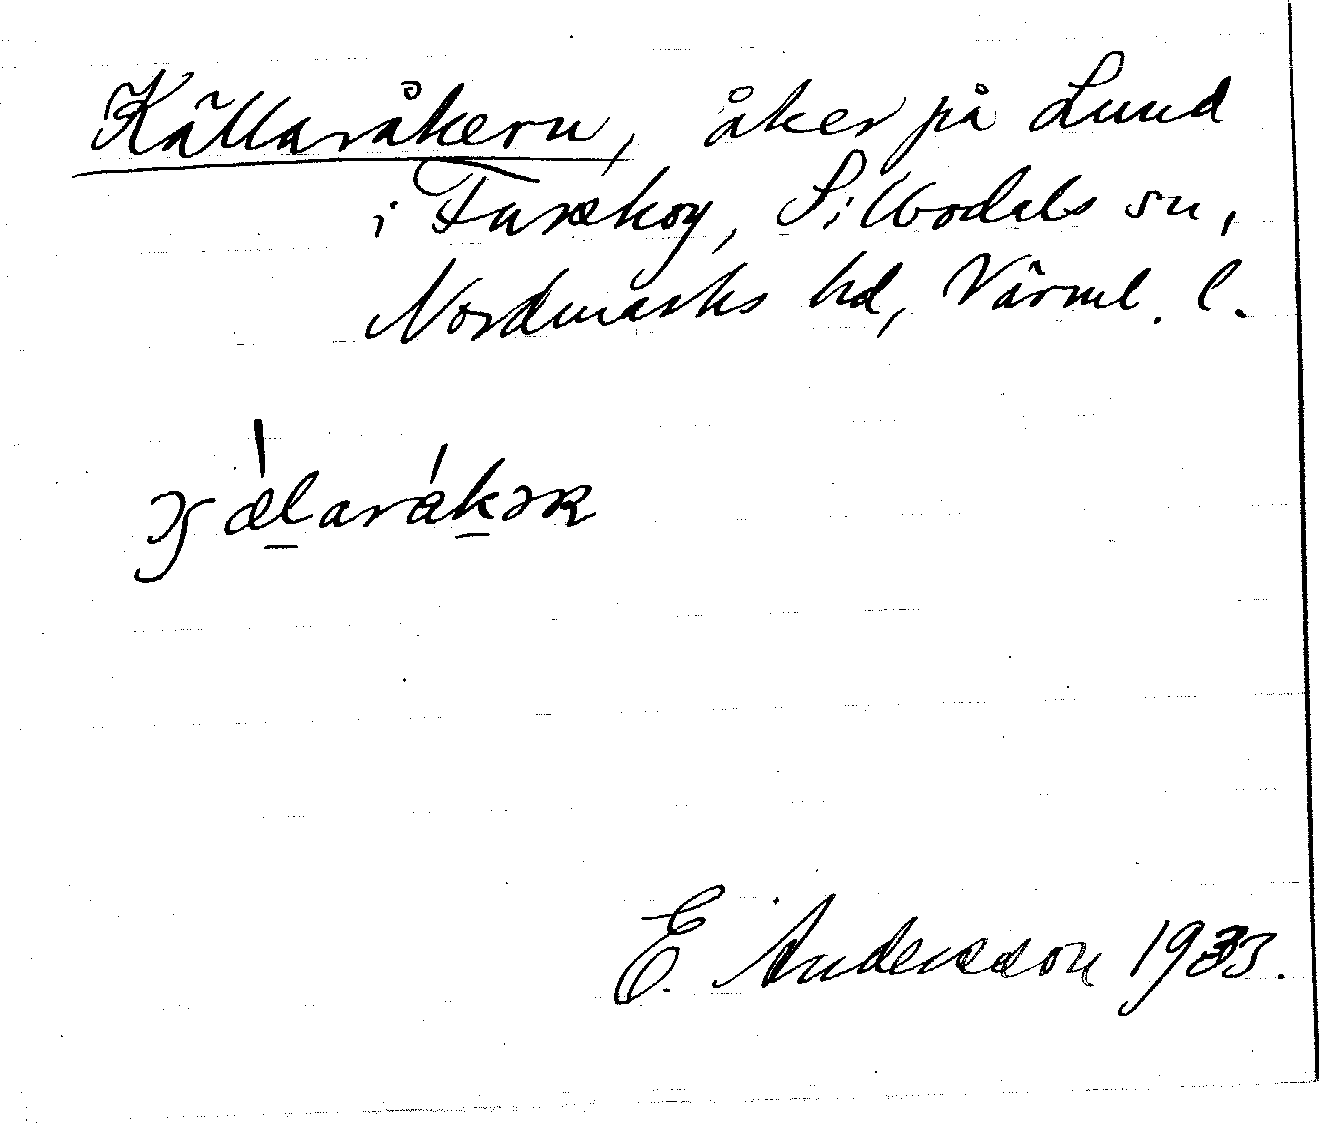 Källaråkern, åker på Lund
i Tarskog, Silbodals sn,
Nordmarks hd, Värml. l.
E. Andersson 1933.